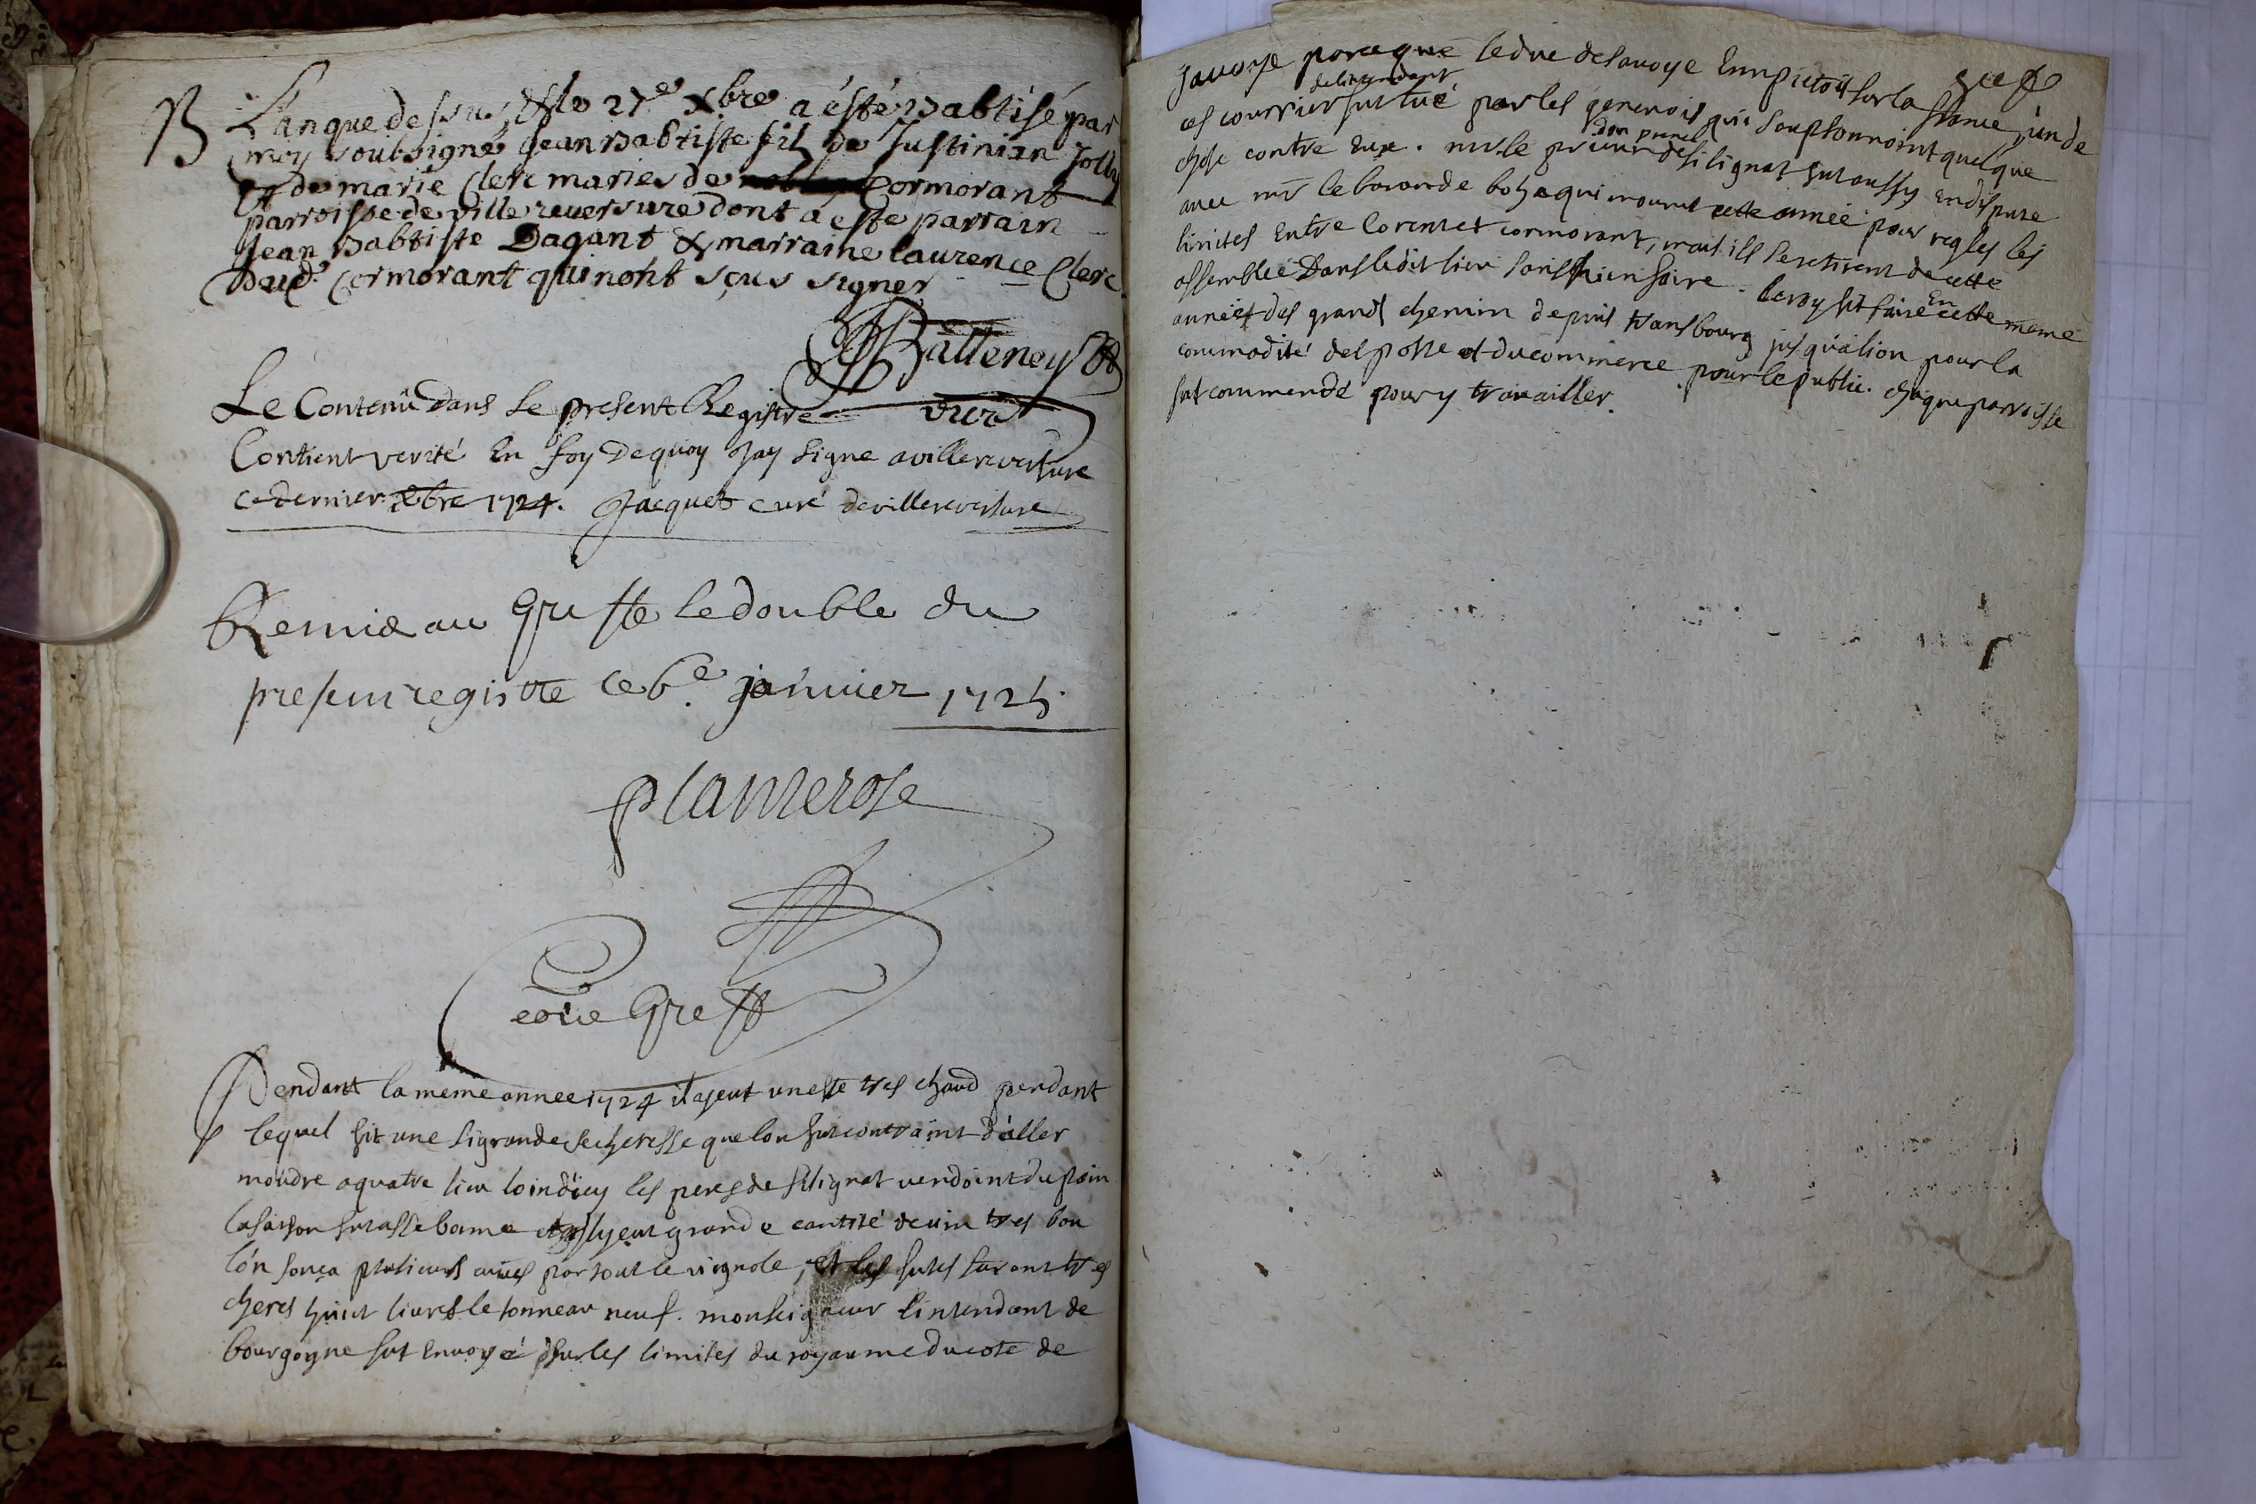 B
L'an que dessus, & le 27e Xbre a ésté Babtisé par
moy soubsigné Jean Babtiste fils de Justinian Jolly
& de marie Clerc mariés de Cormorant
parroisse de ville reversure dont a esté parrain
Jean Babtiste Dagant & marraine laurence Clerc
Dud. Cormorant qui nont sçus signer
Balleney
vicr
Le Contenu dans le present Registre
Contient verité En foy Dequoy Jay signe a villereversure
ce dernier Xbre 1724. Jacquet curé de villereversure
Remis au Greffe le double du
present registre ce 6e. janvier 1725.
Plantierose
Greff
Pendant la meme annee 1724 il a jeut un esté tres chaud pendant
lequel fit une si grande secheresse que lon fut contraint d'aller
moudre a quatre lieu loin d'icy les peres de silignat vendoint du pain
la saison fut asse bonne et il y eut grande cantité de vin tres bon
lón plusieurs par tout le vignole, et les futes furent tres
cheres huict livres le tonneau neuf. monseigneur l'intendant de
bourgogne fut Envoyé sur les limites du royaume du cote de
savoye parceque le duc de savoye Ennpietoit sur la france, ún de
ces courrier fut tué par les genevois qui soupsonnoint quelque
de lintendant
chose contre Eux. mr. le prieur de silignat fut aussy en dispute
avec mr le baron de bohz qui mourut cette année pour regles les
limites Entre Corent et cormorant, mais ils se retirent de cette
assemblée Dans ledit lieu sans rien faire. le roy fit faire En cette meme
année des grands chemin depuis strasbourg jusqu'à lion pour la
commodité des poste et du commerce pour le public. chaque parroisse
fut commendé pour y travailler.